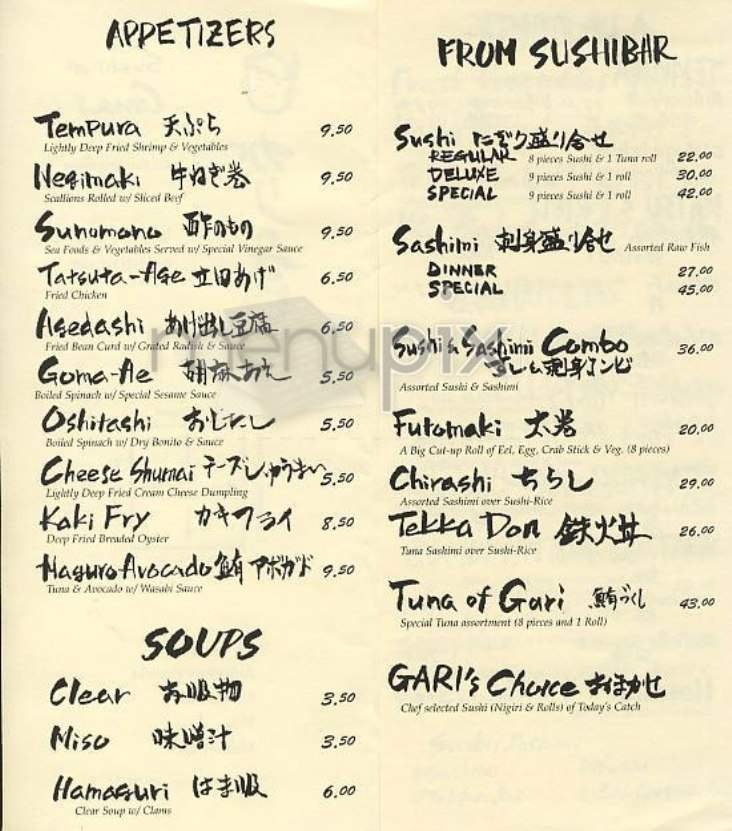 APPETIZERS
Tempura 天ぷら 9.50
Lightly Deep Fried Shrimp & Vegetables
Negimaki 牛ねぎ巻 9.50
Scallions Rolled w/ Sliced Beef
Sunomono 酢のもの 9.50
Sea Foods & Vegetables Served w/ Special Vinegar Sauce
Tatsuta-Age 立田あげ 6.50
Fried Chicken
Agedashi あげ出し豆腐 6.50
Fried Bean Curd w/ Grated Radish & Sauce
Goma-Ae 胡麻あえ 5.50
Boiled Spinach w/ Special Sesame Sauce
Oshitashi おしたし 5.50
Boiled Spinach w/ Dry Bonito & Sauce
Cheese Shumai チーズしゅうまい 5.50
Lightly Deep Fried Cream Cheese Dumpling
Kaki Fry カキフライ 8.50
Deep Fried Breaded Oyster
Maguro Avocado 鮪アボガド 9.50
Tuna & Avocado w/ Wasabi Sauce
SOUPS
Clear お吸物 3.50
Miso 味噌汁 3.50
Hamaguri はま吸 6.00
Clear Soup w/ Clams
FROM SUSHIBAR
Sushi にぎり盛り合せ
REGULAR 8 pieces Sushi & 1 Tuna roll 22.00
DELUXE 9 pieces Sushi & 1 roll 30.00
SPECIAL 9 pieces Sushi & 1 roll 42.00
Sashimi 刺身盛り合せ Assorted Raw Fish
DINNER 27.00
SPECIAL 45.00
Sushi & Sashimi Combo 36.00
すし&刺身コンビ
Assorted Sushi & Sashimi
Futomaki 太巻 20.00
A Big Cut-up Roll of Eel, Egg, Crab Stick & Veg. (8 pieces)
Chirashi ちらし 29.00
Assorted Sashimi over Sushi-Rice
Tekka Don 鉄火丼 26.00
Tuna Sashimi over Sushi-Rice
Tuna of Gari 鮪づくし 43.00
Special Tuna assortment (8 pieces and 1 Roll)
GARI's Choice おまかせ
Chef selected Sushi (Nigiri & Rolls) of Today's Catch
menupix